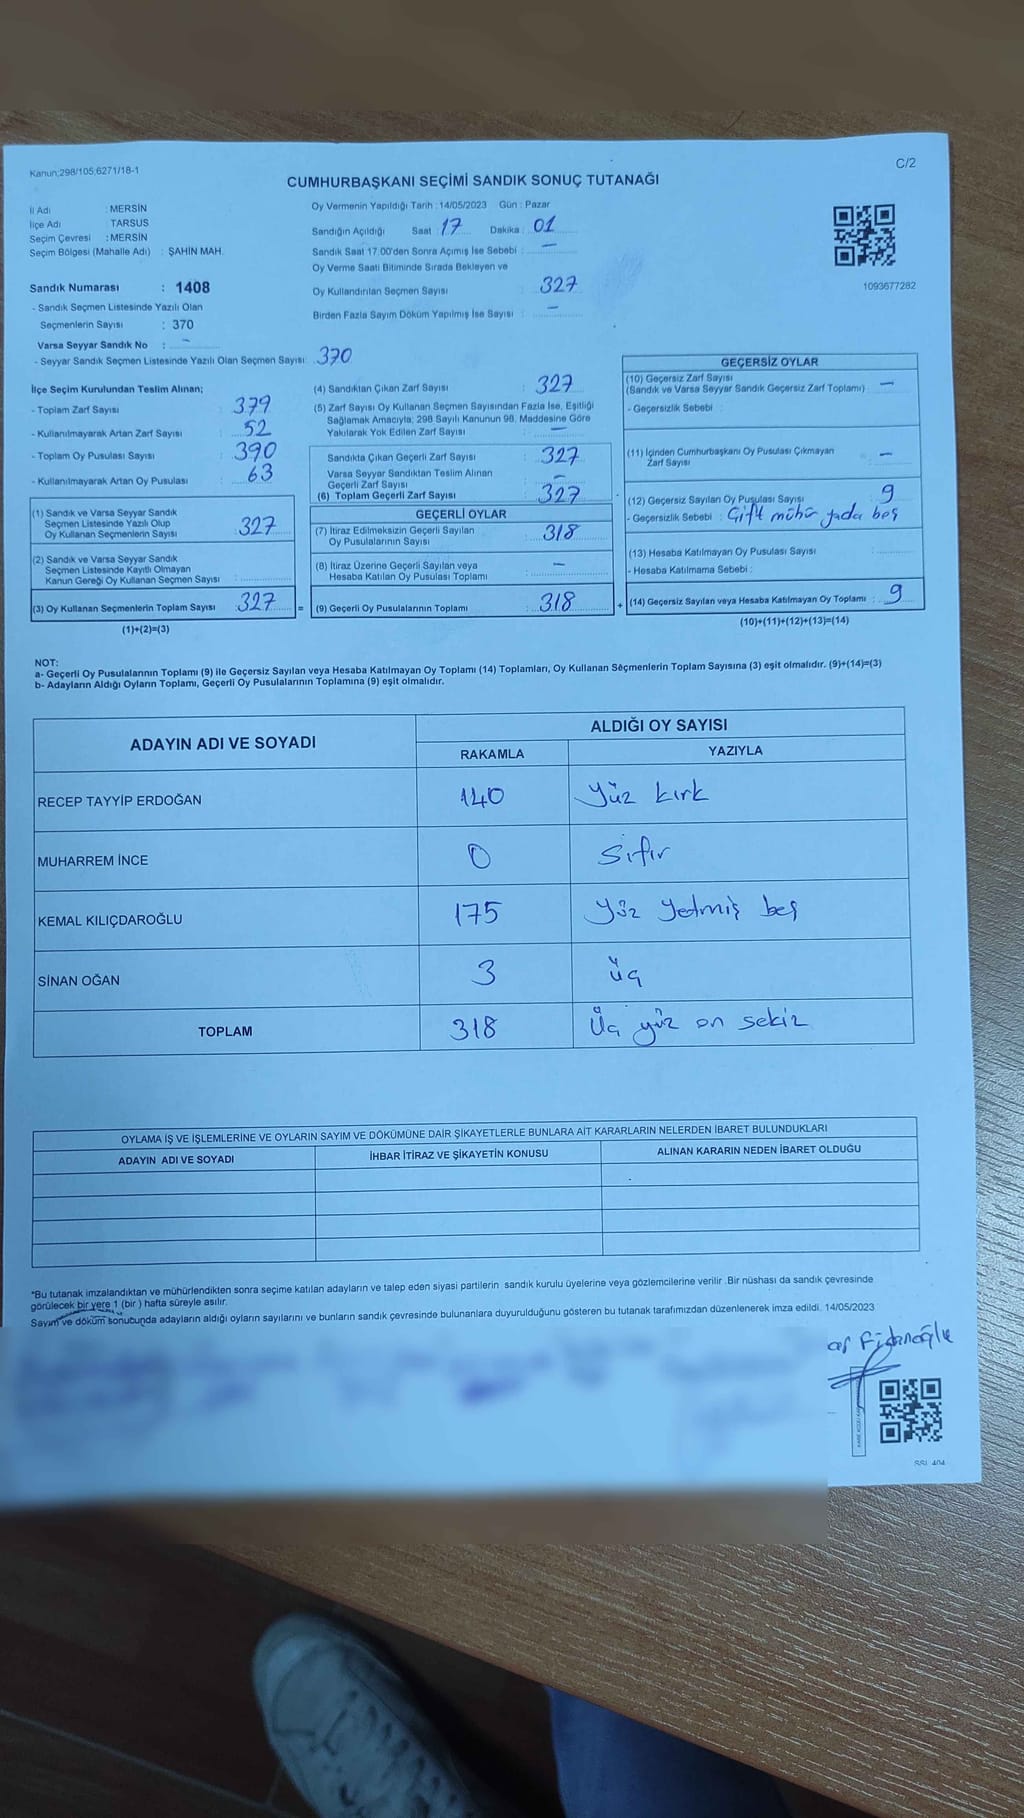 Kanun:298/105,6271/18-1
C/2
CUMHURBAŞKANI SEÇİMİ SANDIK SONUÇ TUTANAĞI
İl Adı : MERSİN
İlçe Adı : TARSUS
Seçim Çevresi : MERSİN
Seçim Bölgesi (Mahalle Adı) : ŞAHİN MAH.
Oy Vermenin Yapıldığı Tarih : 14/05/2023 Gün : Pazar
Sandığın Açıldığı Saat : 17 Dakika : 01
Sandık Saat 17.00'den Sonra Açımış İse Sebebi : —
Oy Verme Saati Bitiminde Sırada Bekleyen ve
Oy Kullandırılan Seçmen Sayısı : 327
Birden Fazla Sayım Döküm Yapılmış İse Sayısı : —
1093677282
Sandık Numarası : 1408
- Sandık Seçmen Listesinde Yazılı Olan
Seçmenlerin Sayısı : 370
Varsa Seyyar Sandık No : —
- Seyyar Sandık Seçmen Listesinde Yazılı Olan Seçmen Sayısı: 370
İlçe Seçim Kurulundan Teslim Alınan;
- Toplam Zarf Sayısı : 379
- Kullanılmayarak Artan Zarf Sayısı : 52
- Toplam Oy Pusulası Sayısı : 390
- Kullanılmayarak Artan Oy Pusulası : 63
(1) Sandık ve Varsa Seyyar Sandık
Seçmen Listesinde Yazılı Olup
Oy Kullanan Seçmenlerin Sayısı : 327
(2) Sandık ve Varsa Seyyar Sandık
Seçmen Listesinde Kayıtlı Olmayan
Kanun Gereği Oy Kullanan Seçmen Sayısı :
(3) Oy Kullanan Seçmenlerin Toplam Sayısı : 327 =
(1)+(2)=(3)
(4) Sandıktan Çıkan Zarf Sayısı : 327
(5) Zarf Sayısı Oy Kullanan Seçmen Sayısından Fazla İse, Eşitliği
Sağlamak Amacıyla; 298 Sayılı Kanunun 98. Maddesine Göre
Yakılarak Yok Edilen Zarf Sayısı : —
Sandıkta Çıkan Geçerli Zarf Sayısı : 327
Varsa Seyyar Sandıktan Teslim Alınan
Geçerli Zarf Sayısı : —
(6) Toplam Geçerli Zarf Sayısı : 327
GEÇERLİ OYLAR
(7) İtiraz Edilmeksizin Geçerli Sayılan
Oy Pusulalarının Sayısı : 318
(8) İtiraz Üzerine Geçerli Sayılan veya
Hesaba Katılan Oy Pusulası Toplamı : —
(9) Geçerli Oy Pusulalarının Toplamı : 318 +
GEÇERSİZ OYLAR
(10) Geçersiz Zarf Sayısı
(Sandık ve Varsa Seyyar Sandık Geçersiz Zarf Toplamı) : —
- Geçersizlik Sebebi :
(11) İçinden Cumhurbaşkanı Oy Pusulası Çıkmayan
Zarf Sayısı : —
(12) Geçersiz Sayılan Oy Pusulası Sayısı : 9
- Geçersizlik Sebebi : Çift mühür yada boş
(13) Hesaba Katılmayan Oy Pusulası Sayısı :
- Hesaba Katılmama Sebebi :
(14) Geçersiz Sayılan veya Hesaba Katılmayan Oy Toplamı : 9
(10)+(11)+(12)+(13)=(14)
NOT:
a- Geçerli Oy Pusulalarının Toplamı (9) ile Geçersiz Sayılan veya Hesaba Katılmayan Oy Toplamı (14) Toplamları, Oy Kullanan Seçmenlerin Toplam Sayısına (3) eşit olmalıdır. (9)+(14)=(3)
b- Adayların Aldığı Oyların Toplamı, Geçerli Oy Pusulalarının Toplamına (9) eşit olmalıdır.
ADAYIN ADI VE SOYADI ALDIĞI OY SAYISI
RAKAMLA YAZIYLA
RECEP TAYYİP ERDOĞAN 140 Yüz kırk
MUHARREM İNCE 0 Sıfır
KEMAL KILIÇDAROĞLU 175 Yüz Yetmiş beş
SİNAN OĞAN 3 üç
TOPLAM 318 Üç yüz on sekiz
OYLAMA İŞ VE İŞLEMLERİNE VE OYLARIN SAYIM VE DÖKÜMÜNE DAİR ŞİKAYETLERLE BUNLARA AİT KARARLARIN NELERDEN İBARET BULUNDUKLARI
ADAYIN ADI VE SOYADI İHBAR İTİRAZ VE ŞİKAYETİN KONUSU ALINAN KARARIN NEDEN İBARET OLDUĞU
*Bu tutanak imzalandıktan ve mühürlendikten sonra seçime katılan adayların ve talep eden siyasi partilerin sandık kurulu üyelerine veya gözlemcilerine verilir .Bir nüshası da sandık çevresinde
görülecek bir yere 1 (bir ) hafta süreyle asılır.
Sayım ve döküm sonucunda adayların aldığı oyların sayılarını ve bunların sandık çevresinde bulunanlara duyurulduğunu gösteren bu tutanak tarafımızdan düzenlenerek imza edildi. 14/05/2023
Fidanoğlu